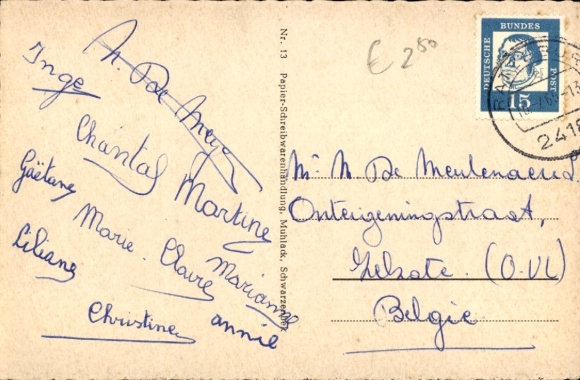 Inge
Chantal
Martine
Gaëtane
Marie-Claire
Marianne
Liliane
Christine
annie
Nr. 13 Papier-Schreibwarenhandlung, Muhlack, Schwarzenbek
€ 2,50
DEUTSCHE BUNDESPOST
15
2418
Mr. M. De Meulenaere
Onteigeningstraat,
Zelzate. (O.Vl.)
Belgie